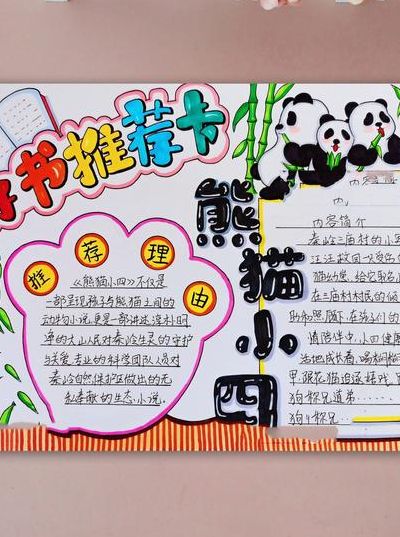 好书推荐卡
推荐理由
《熊猫小四》不仅是
一部呈现孩子与熊猫之间的
动物小说,更是一部讲述淳朴
单的大山人民对秦岭生灵的守护
与关爱,专业的科学团队人员对
秦岭自然保护区做出的无
私奉献的生态小说.
熊猫小四
内容
内,
内容简介
秦岭三庙村的小
汪汪救回一只
猫幼崽,给它取名
在三庙村村民的
助和照顾下,在孩子们的
情陪伴中,小四健康
当地成长着,喝
早跟花猫追逐嬉戏,
狗称兄道弟......
狗了称兄